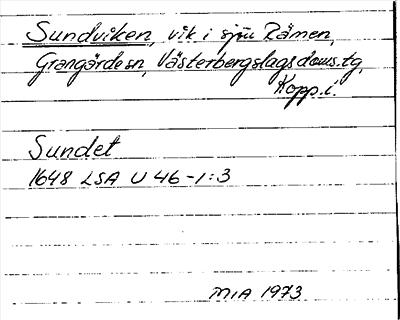 Sundviken, vik i sjön Rämen,
Grangärde sn, Västerbergslags doms.tg,
Kopp. i.
Sundet
1648 LSA U 46-1:3
MIA 1973